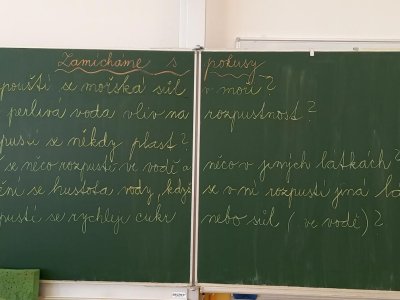 Zamícháme s pokusy
pouští se mořská sůl v moři?
perlivá voda vliv na rozpustnost?
pustí se někdy plast?
se něco rozpustí ve vodě a něco v jiných látkách?
ění se hustota vody, když se v ní rozpustí jiná lá
pustí se rychleji cukr nebo sůl (ve vodě)?